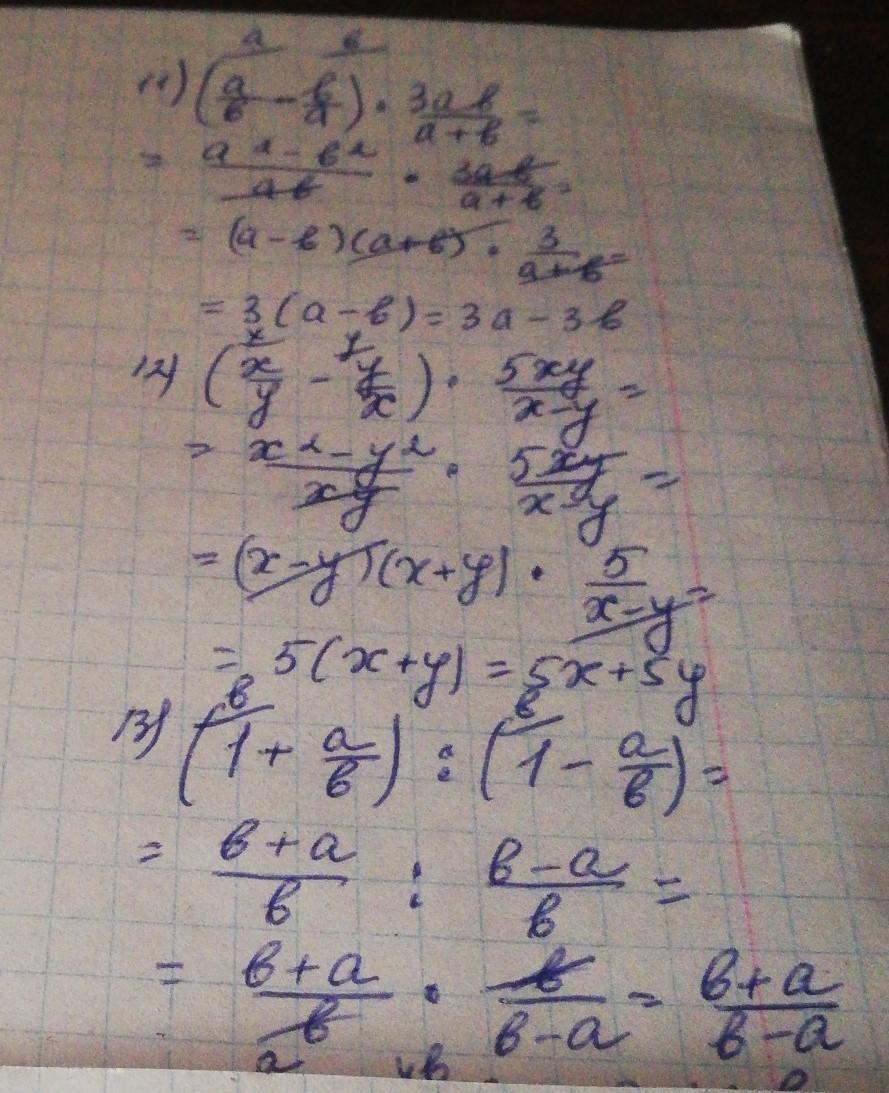 a b
11) (a/b - b/a) · 3ab/(a+b) =
= (a² - b²)/(ab) · 3ab/(a+b) =
= (a-b)(a+b) · 3/(a+b) =
= 3(a-b) = 3a - 3b
x y
12) (x/y - y/x) · 5xy/(x-y) =
= (x² - y²)/(xy) · 5xy/(x-y) =
= (x-y)(x+y) · 5/(x-y) =
= 5(x+y) = 5x+5y
b b
13) (1 + a/b) : (1 - a/b) =
= (b+a)/b : (b-a)/b =
= (b+a)/b · b/(b-a) = (b+a)/(b-a)
a